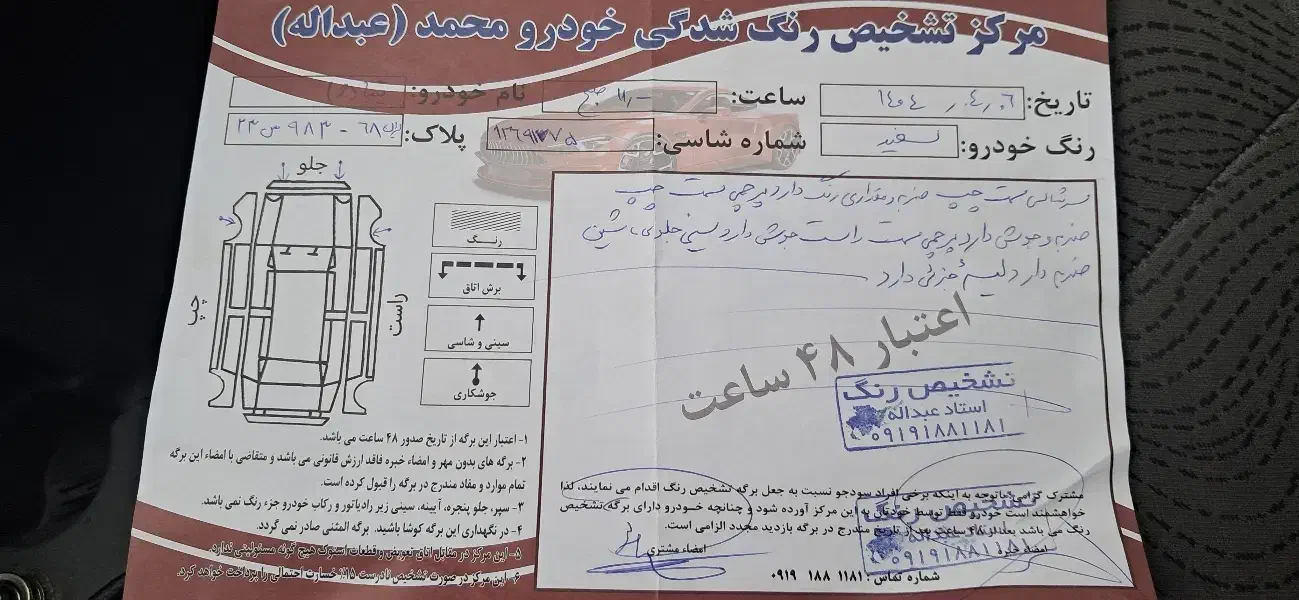 مرکز تشخیص رنگ شدگی خودرو محمد (عبداله)
تاریخ: ۱۴۰۴/۰۴/۰۶
ساعت: ۱۱/- صبح
نام خودرو:
رنگ خودرو: سفید
شماره شاسی:
پلاک: ایران ۶۸ - ۹۸۳ س ۲۳
جلو
چپ
راست
رنگ
برش اتاق
سینی و شاسی
جوشکاری
سرشاسی سمت چپ ضربه و مقداری رنگ دارد پرچمی سمت چپ
ضربه و جوش دارد پرچمی سمت راست جوش دارد سینی جلو
ضربه دارد لیسه جزئی دارد
اعتبار ۴۸ ساعت
تشخیص رنگ
استاد عبداله
۰۹۱۹۱۸۸۱۱۸۱
۱- اعتبار این برگه از تاریخ صدور ۴۸ ساعت می باشد.
۲- برگه های بدون مهر و امضاء خبره فاقد ارزش قانونی می باشد و متقاضی با امضاء این برگه
تمام موارد و مفاد مندرج در برگه را قبول کرده است.
۳- سپر، جلو پنجره، آیینه، سینی زیر رادیاتور و رکاب خودرو جزء رنگ نمی باشد.
۴- در نگهداری این برگه کوشا باشید. برگه المثنی صادر نمی گردد.
۵- این مرکز در مقابل اتاق تعویض و قطعات استوک هیچ گونه مسئولیتی ندارد.
۶- این مرکز در صورت تشخیص نادرست ۱۵٪ خسارت احتمالی را پرداخت خواهد کرد.
مشترک گرامی باتوجه به اینکه برخی افراد سودجو نسبت به جعل برگه تشخیص رنگ اقدام می نمایند، لذا
خواهشمند است خودرو فقط توسط خودتان به این مرکز آورده شود و چنانچه خودرو دارای برگه تشخیص
رنگ می باشد، بعد از ۴۸ ساعت بعد از تاریخ مندرج در برگه بازدید مجدد الزامی است.
امضاء مشتری
امضاء خبره
تشخیص رنگ
۰۹۱۹۱۸۸۱۱۸۱
شماره تماس: ۱۱۸۱ ۱۸۸ ۰۹۱۹